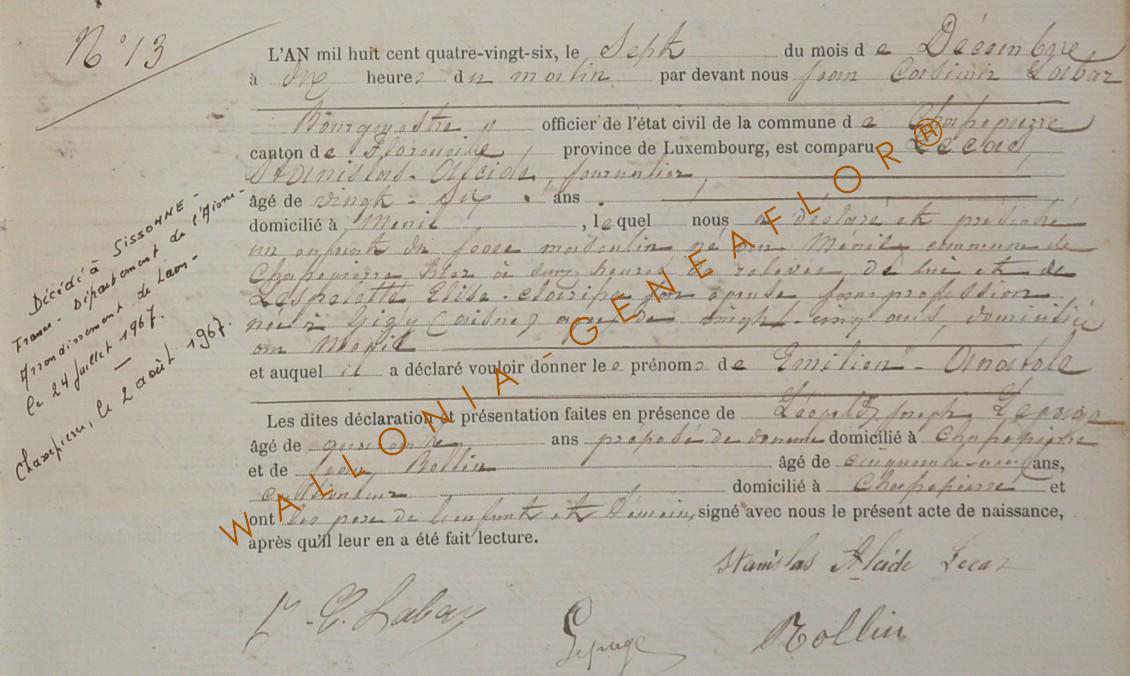 N° 13
L'AN mil huit cent quatre-vingt-six, le Sept du mois de Décembre
à dix heures du matin par devant nous Jean Casimir Labar
Bourgmestre officier de l'état civil de la commune de Chassepierre
canton de Florenville province de Luxembourg, est comparu Lécaz
Stanislas-Alcide, journalier,
âgé de vingt-six ans
domicilié à Ménil, lequel nous a déclaré et présenté
un enfant du sexe masculin né au Ménil commune de
Chassepierre hier à heures de relevée, de lui et de
Elise son épouse sans profession
née à (aisne) âgée de vingt-cinq ans, domiciliée
au Ménil
et auquel il a déclaré vouloir donner les prénoms de Emilien-Anatole
Les dites déclaration et présentation faites en présence de Léopold, Joseph Lepage
âgé de quarante ans préposé de douane domicilié à Chassepierre
et de Rollin âgé de cinquante-neuf ans,
cultivateur domicilié à Chassepierre et
ont les père de l'enfant et témoins, signé avec nous le présent acte de naissance,
après qu'il leur en a été fait lecture.
Stanislas Alcide Lecaz
J. C. Labar
Lepage
Rollin
Décédé à SISSONNE -
France - Département de l'Aisne -
Arrondissement de Laon -
le 24 juillet 1967.
Chassepierre, le 2 août 1967.
WALLONIA - GENEAFLOR®